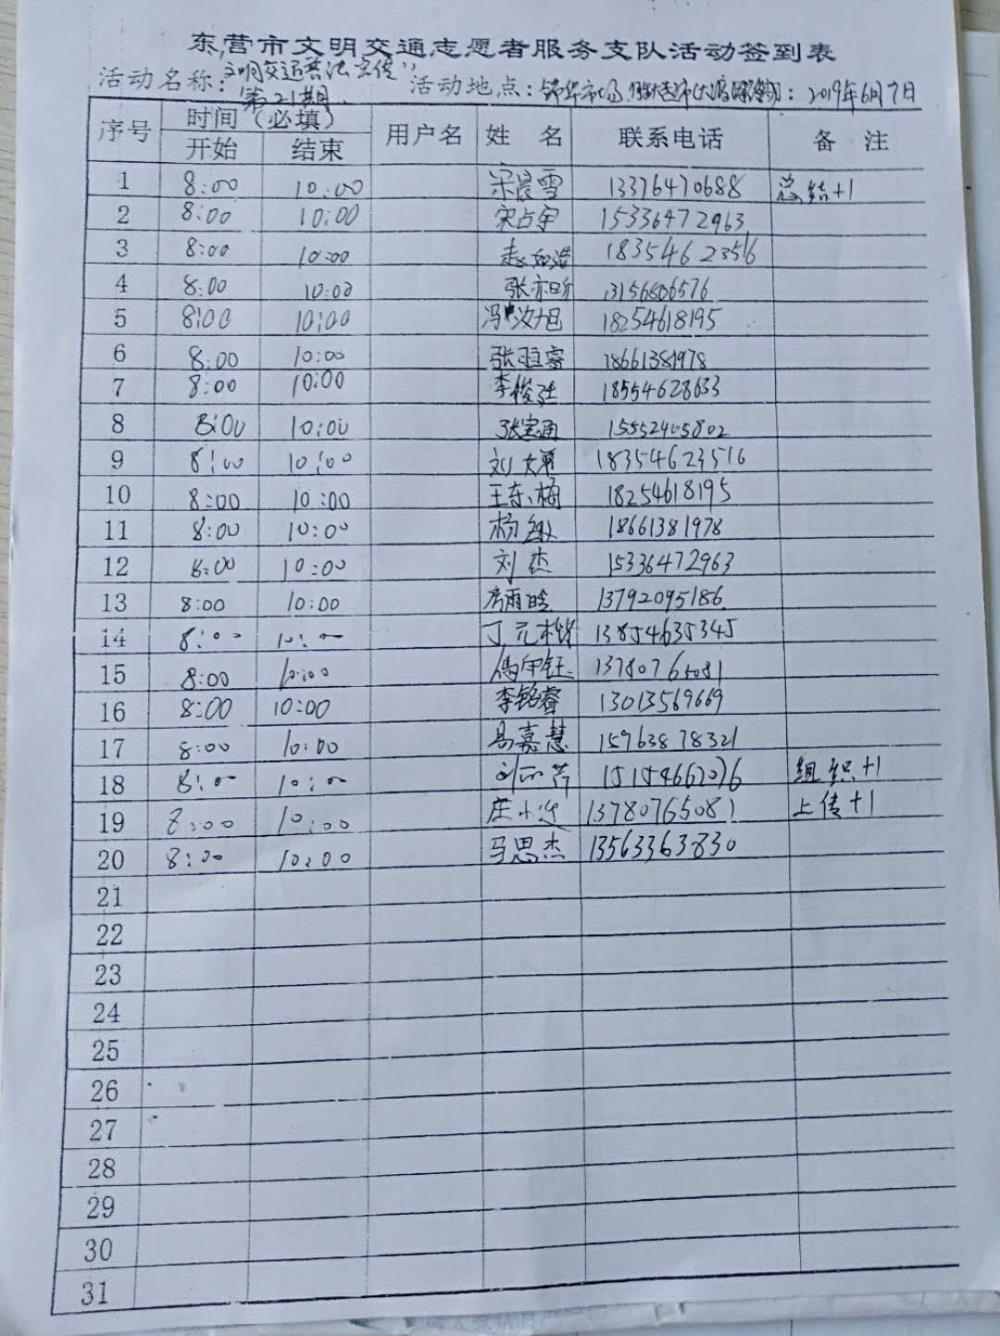 东营市文明交通志愿者服务支队活动签到表
活动名称：文明交通普法宣传 活动地点： 2019年6月7日
第21期
序号 时间（必填） 用户名 姓 名 联系电话 备 注
开始 结束
1 8:00 10:00 宋晨雪 13376470688 总结+1
2 8:00 10:00 宋占宇 15336472963
3 8:00 10:00 18354612356
4 8:00 10:00 13156806576
5 8:00 10:00 18254618195
6 8:00 10:00 18661381978
7 8:00 10:00 18554628633
8 8:00 10:00 张宝通 15552405802
9 8:00 10:00 18354623516
10 8:00 10:00 王东梅 18254618195
11 8:00 10:00 18661381978
12 8:00 10:00 刘杰 15336472963
13 8:00 10:00 13792095186
14 8:00 10:00 13854635345
15 8:00 10:00 13780765081
16 8:00 10:00 李铭睿 13013569669
17 8:00 10:00 易嘉慧 15963878321
18 8:00 10:00 组织+1
19 8:00 10:00 13780765081 上传+1
20 8:00 10:00 马思杰 13563363830
21
22
23
24
25
26
27
28
29
30
31